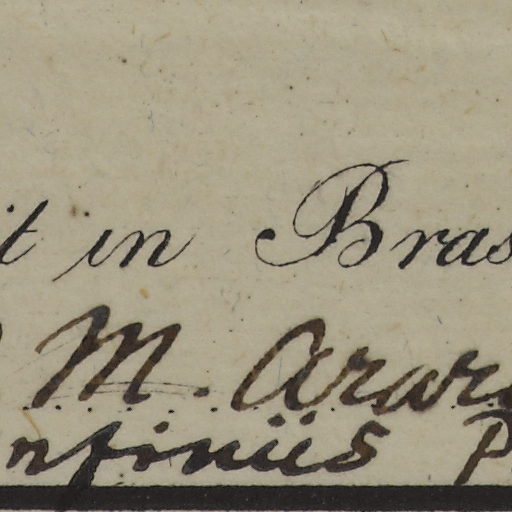 it in Bras
M. Arar
nfiniis P